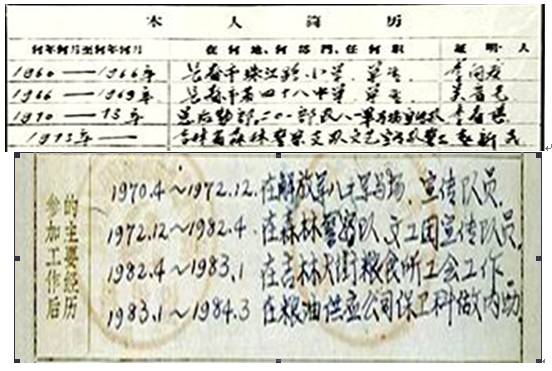 本人简历
何年何月至何年何月 在何地、何部門、任何职 証明人
1960——1966年 长春市珠江路小学 学生
1966——1969年 长春市第四十八中学 学生
1970——73年
1973年—— 吉林省森林警察 文艺宣传队
参加工作后的主要经历
1970.4～1972.12.在解放军八一军马场.宣传队员.
1972.12～1982.4.在森林警察队文工团宣传队员.
1982.4～1983.1 在吉林大街粮食所工会工作.
1983.1～1984.3 在粮油供应公司保卫科做内勤.